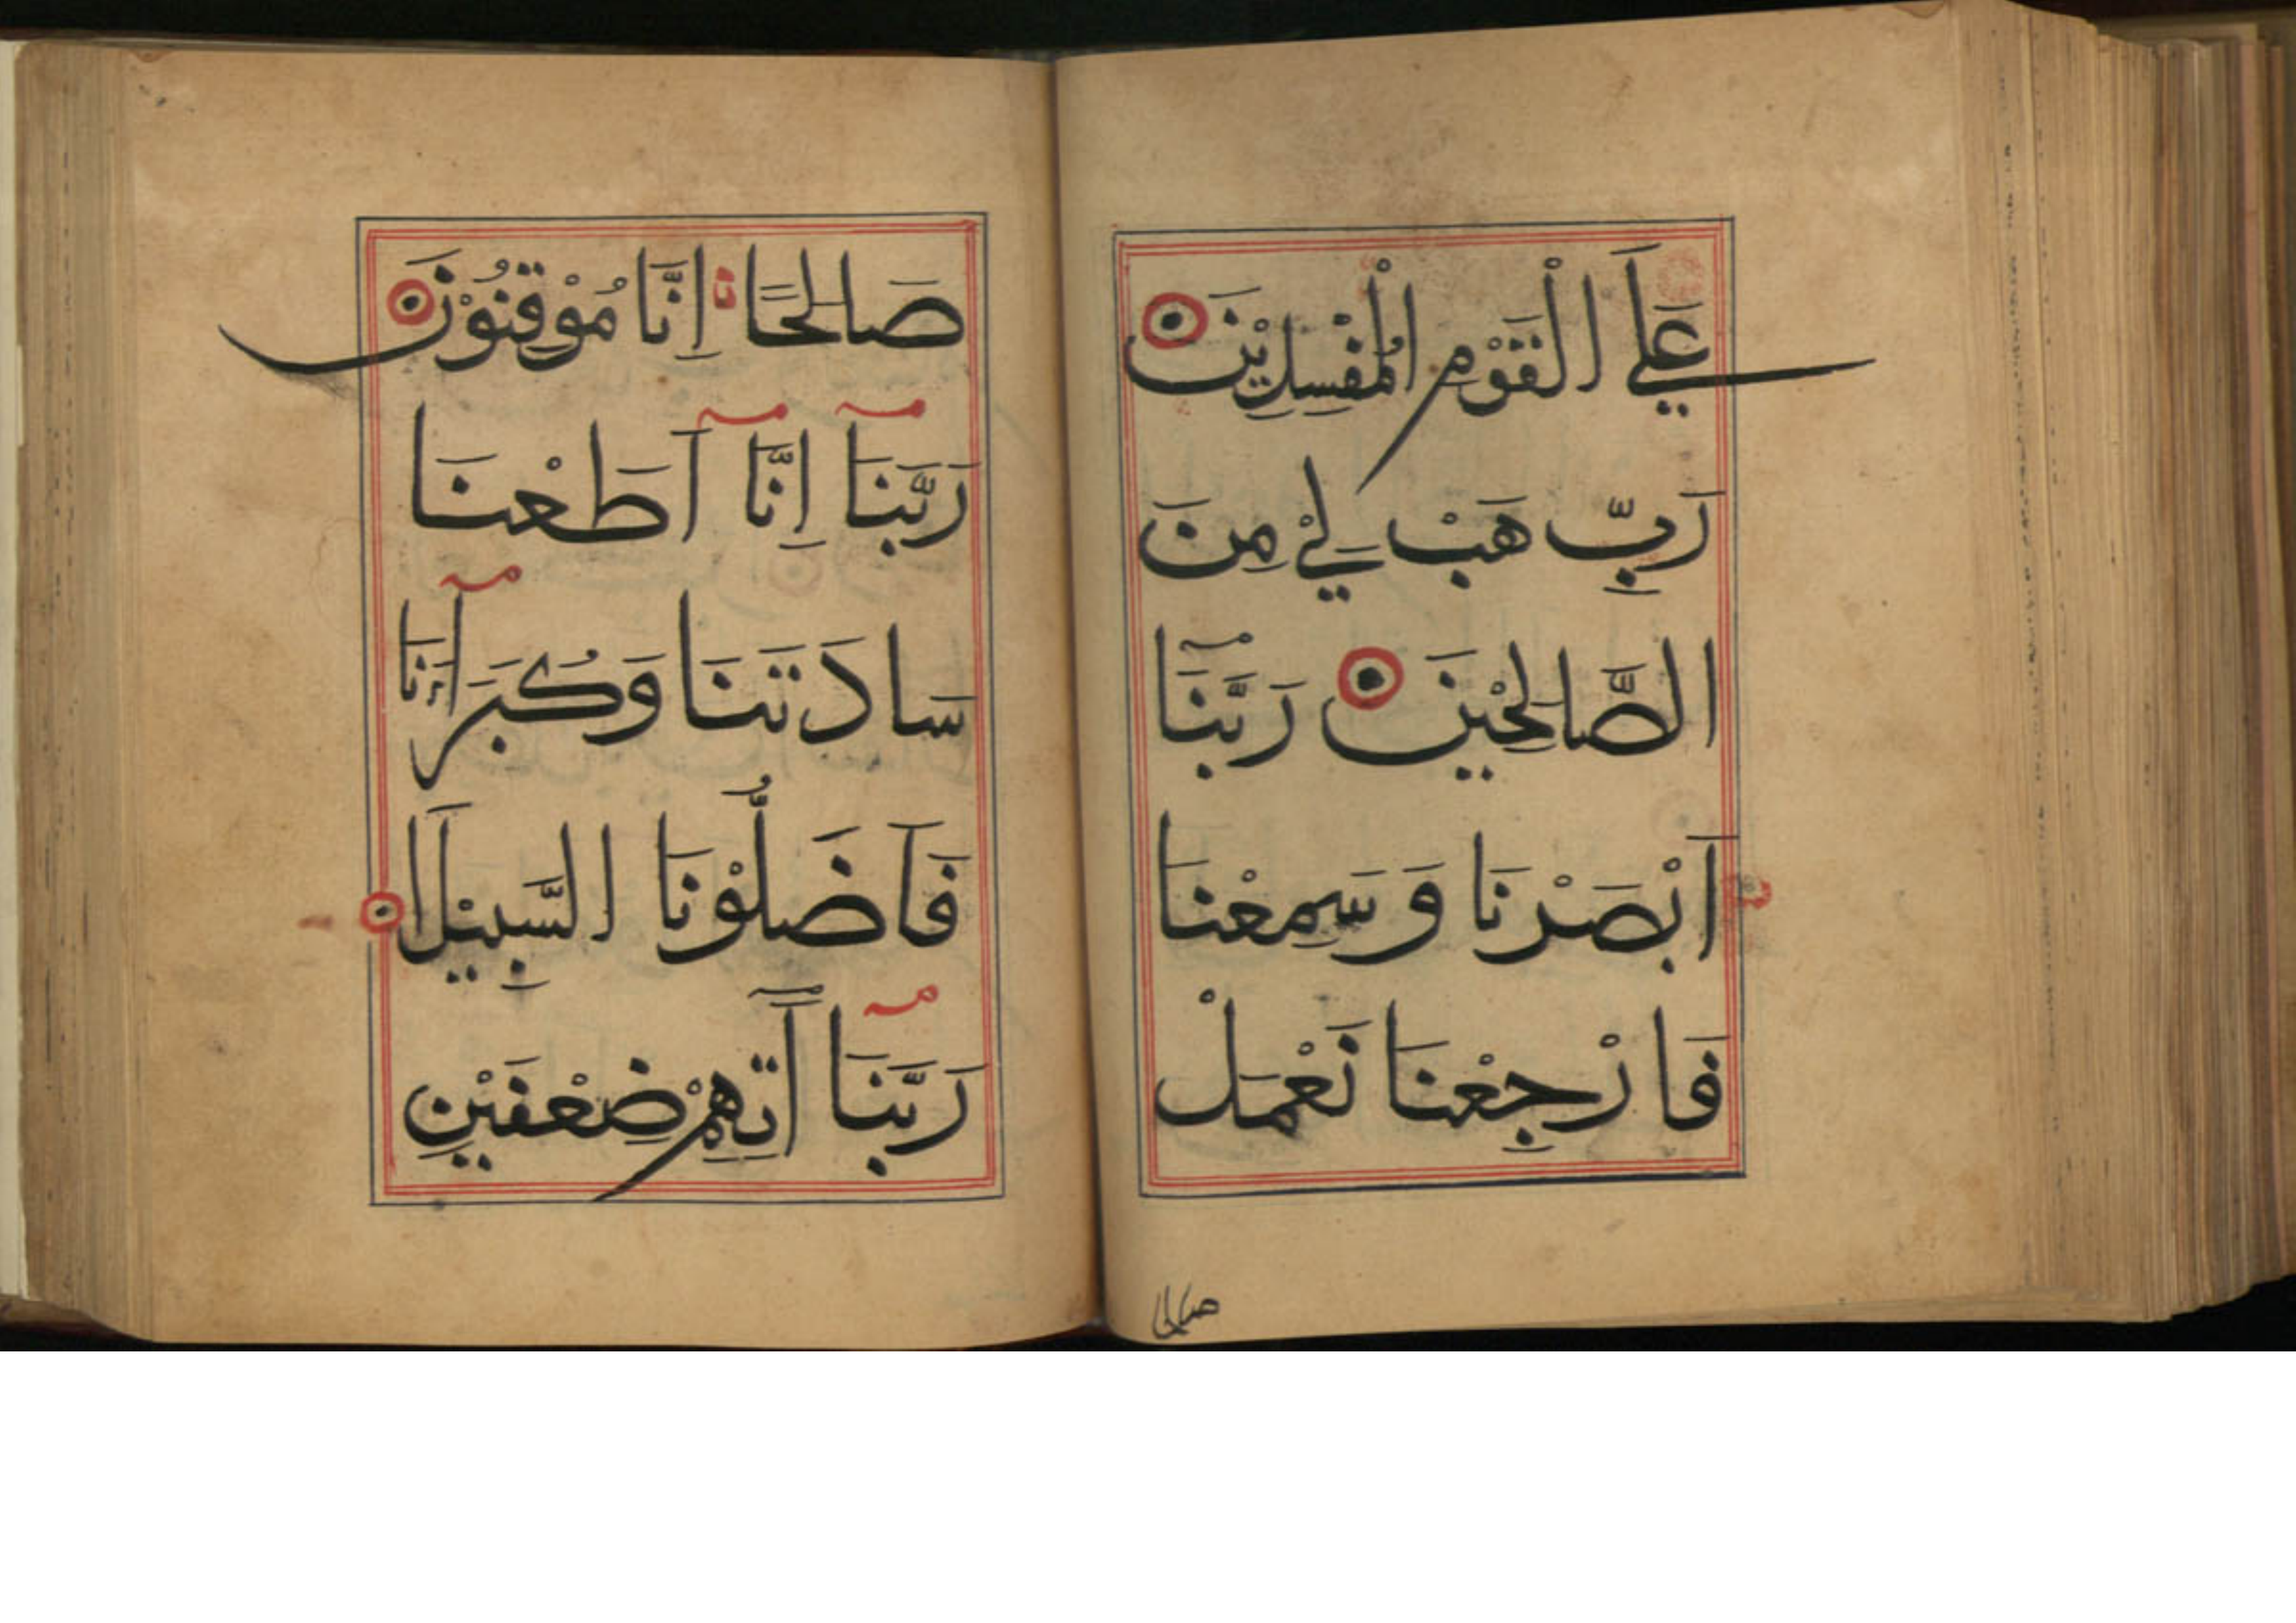 عَلَي الْقَوْمِ الْمُفْسِدِيْنَ
رَبِّ هَبْ لِيْ مِنَ
الصَّالِحِيْنَ رَبَّنَآ
اَبْصَرْنَا وَسَمِعْنَا
فَارْجِعْنَا نَعْمَلْ
صالحا
صَالِحًا اِنَّا مُوْقِنُوْنَ
رَبَّنَآ اِنَّآ اَطَعْنَا
سَادَتَنَا وَكُبَرَآءَنَا
فَاَضَلُّوْنَا السَّبِيْلَا
رَبَّنَآ اٰتِهِمْ ضِعْفَيْنِ